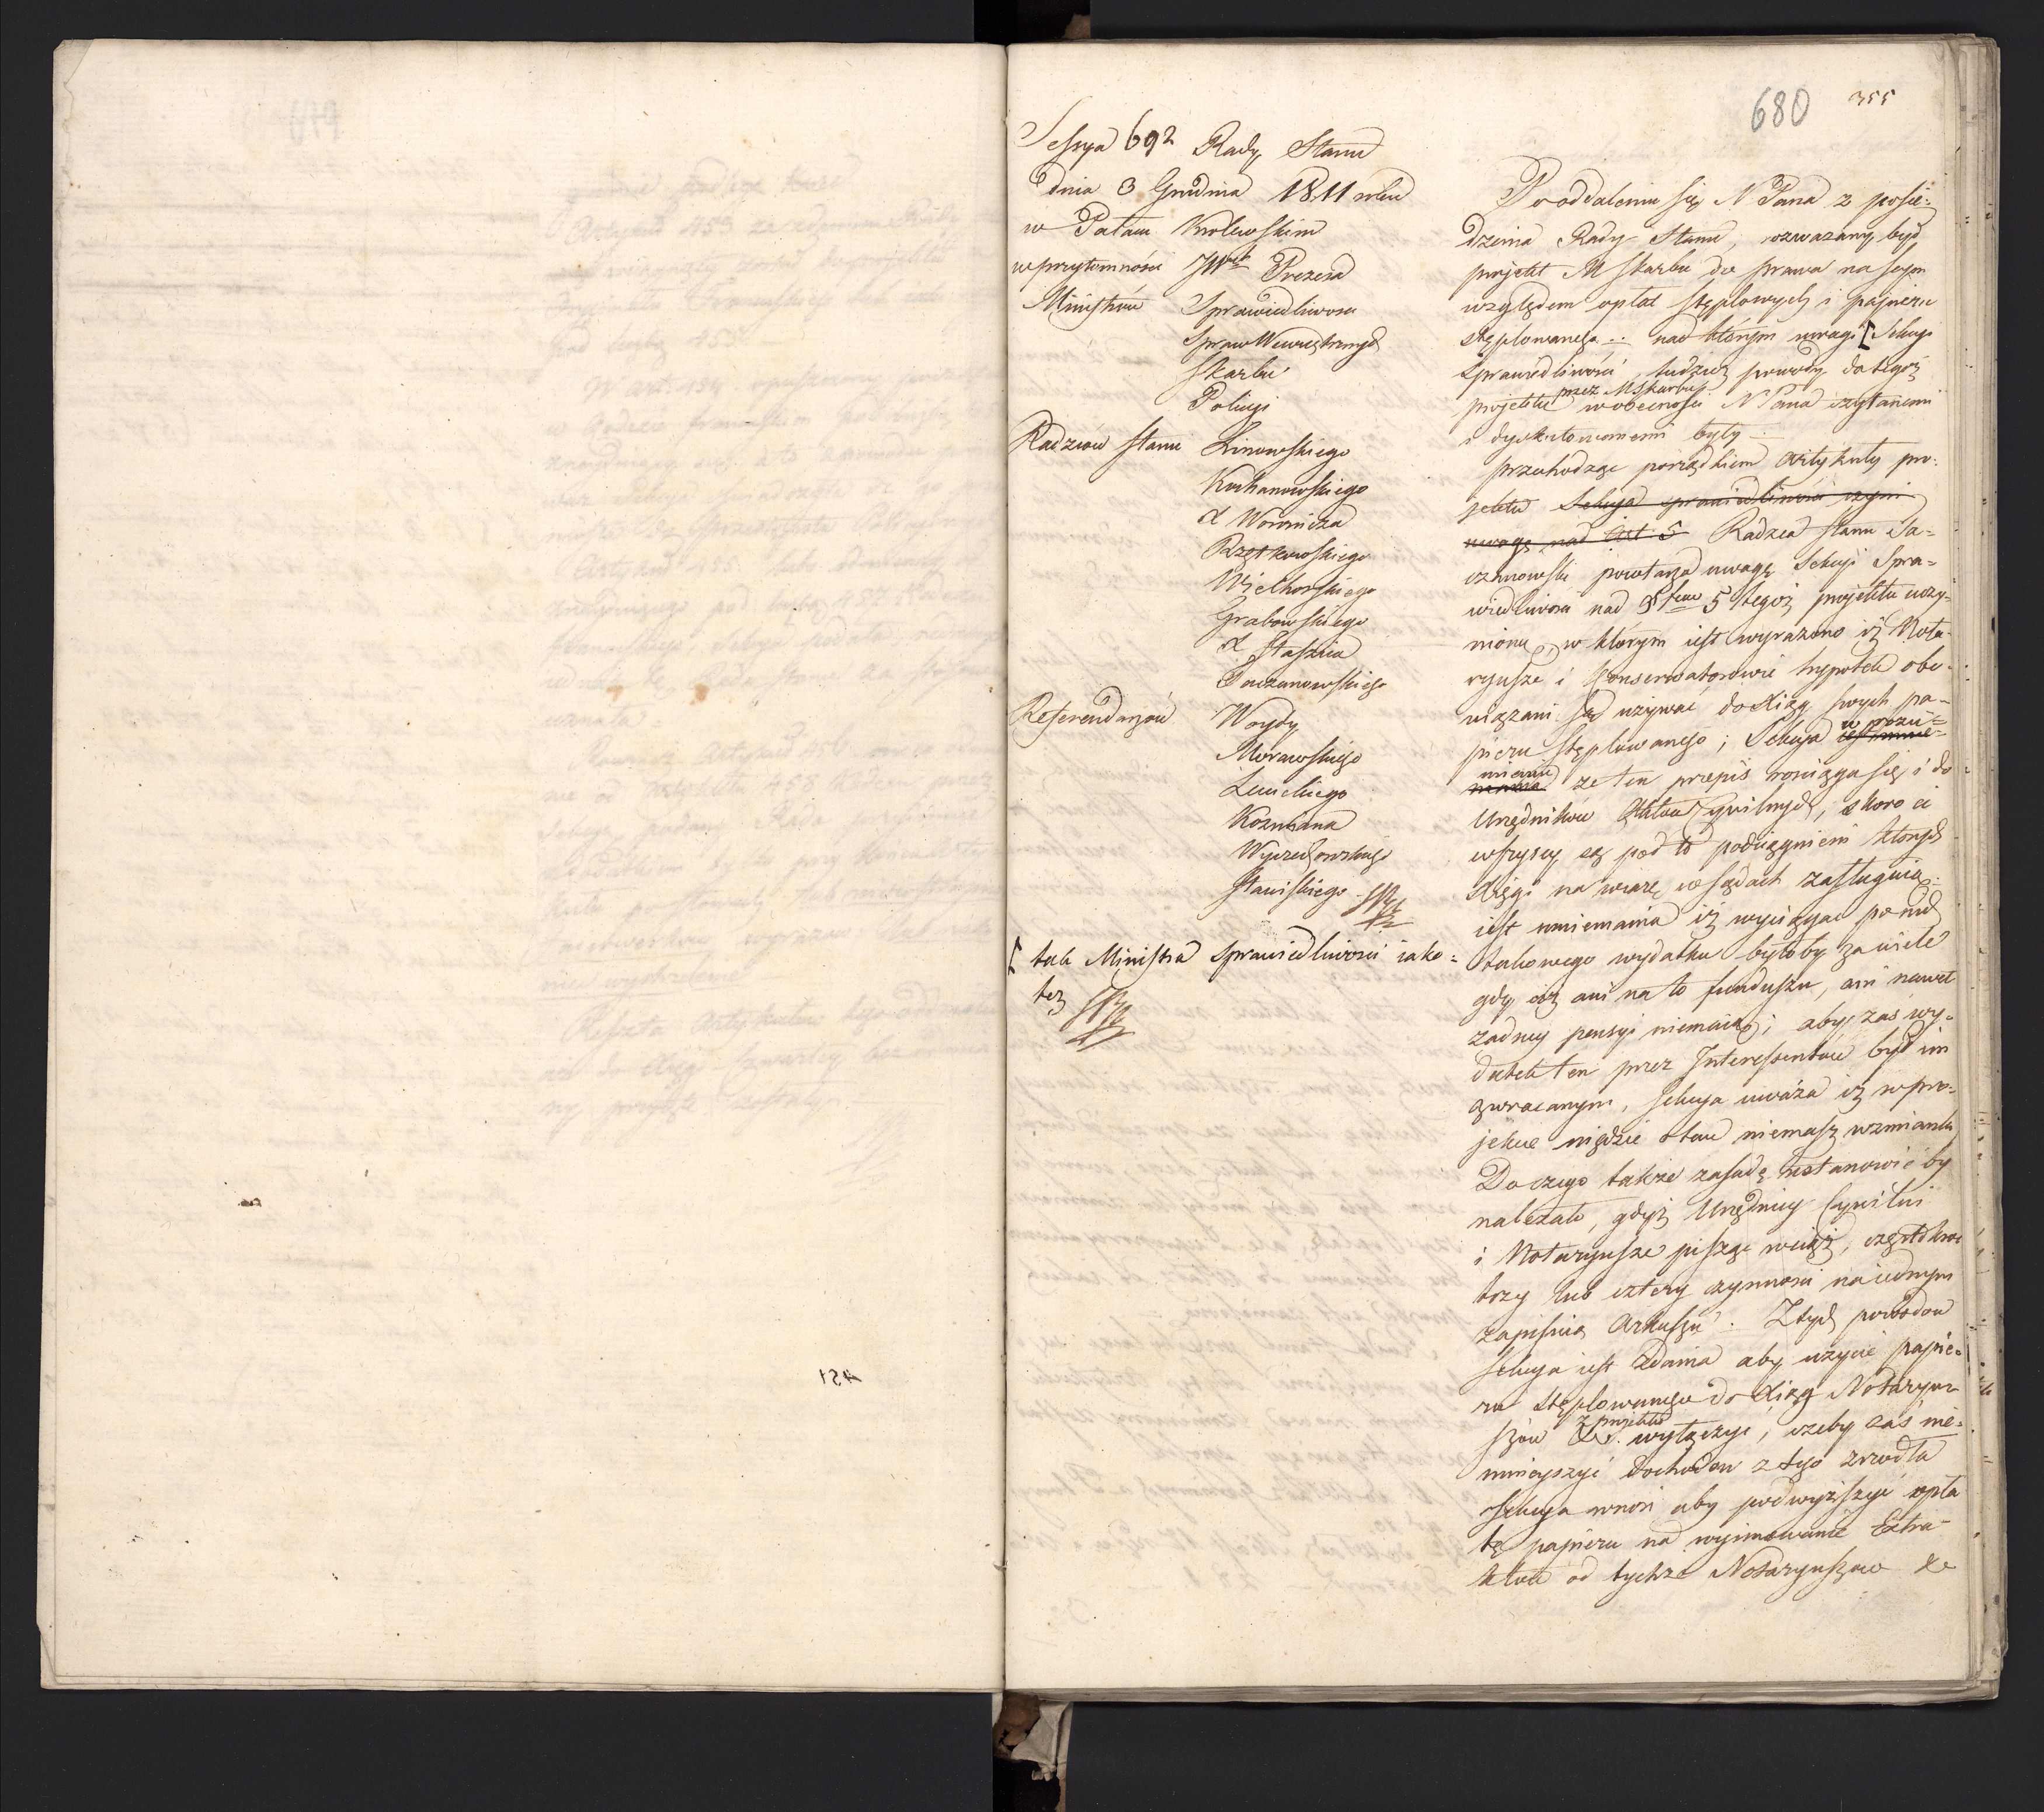 680 355
Sessya 692 Rady Stanu
dnia 3 Grudnia 1811 roku
w Pałacu Krolewskim
w przytomności JW Prezesa
Ministrów Sprawiedliwości
Spraw Wewnętrznych
Skarbu
Policyi
Radzców Stanu Linowskiego
Kochanowskiego
X Woronicza
Rzętkowskiego
Wielhorskiego
Grabowskiego
X Staszica
Taczanowskiego
Referendarzów Woydy
Morawskiego
Lewickiego
Kozmiana
Wyczechowskiego
Stawiskiego
[ tak Ministra Sprawiedliwości iako=
też
Po oddaleniu się N Pana z posie=
dzenia Rady Stanu, rozważany był
projekt M Skarbu do prawa na seym
względem opłat stęplowych i papieru
stęplowanego .. nad którym uwagi [ Sekcyi
Sprawiedliwości, tudzież powody do tegoż
projektu przez M Skarbu w obecności N Pana czytanemi
i dyskutowanemi były –
przechodząc porządkiem artykuły pro=
jektu Sekcya sprawiedliwości czyni
uwagę nad Art. 5 Radzca Stanu Ta=
czanowski powtarza uwagę Sekcyi Spra=
wiedliwości nad 5 tegoż projektu uczy=
nioną, w którym iest wyrażono iż Nota=
ryusze i Konserwatorowie hypotek obo=
wiązani są używać do Xiąg swych pa=
pieru stęplowanego; Sekcya w rozu=
mieniu że ten przepis rościąga się i do
Urzędników Stanu Cywilnych, skoro ci
wszyscy są pod to podciągnieni których
Xięgi na wiarę w sądach zasługuią.
iest mniemania iż wyciągać po nich
takowego wydatku byłoby za wiele
gdy iuż ani na to funduszu, ani nawet
żadney pensyi niemaią; aby zaś wy=
datek ten przez Interessentów był im
zwracanym, Sekcya uważa iż w pro=
jekcie nigdzie o tem niemasz wzmianki
Do czego także zasadę ustanowić by
należało, gdyż Urzędnicy Cywilni
i Notaryusze pisząc wciąż, częstokroć
trzy lub cztery czynności na iednym
zapisuią Arkuszu. Z tych powodow
Sekcya iest zdania aby użycie papie=
ru stęplowanego do Xiąg Notaryu=
szów &c. z projektu wyłączyć, żeby zaś nie=
zmnieyszyć dochodow z tego zrzodła
Sekcya wnosi aby podwyższyć opła
tę papieru na wyimowanie Extra=
któw od tychże Notaryuszow &c
451